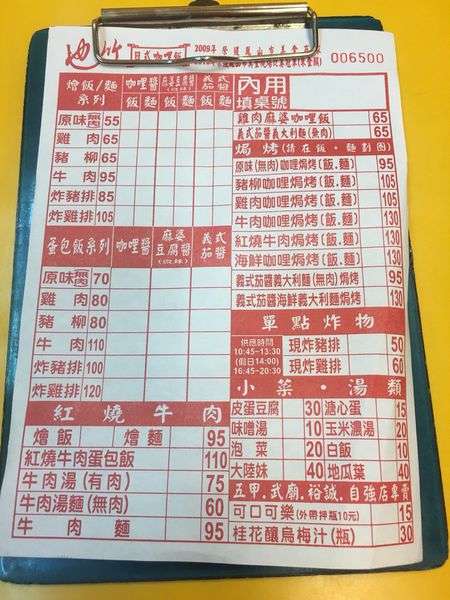 日式咖哩飯
006500
燴飯/麵系列 咖哩醬 麻婆豆腐醬 義式茄醬
飯 麵 飯 麵 飯 麵
原味(無肉) 55
雞肉 65
豬柳 65
牛肉 95
炸豬排 85
炸雞排 105
蛋包飯系列 咖哩醬 麻婆豆腐醬 義式茄醬
原味(無肉) 70
雞肉 80
豬柳 80
牛肉 110
炸豬排 100
炸雞排 120
紅燒牛肉
燴飯 燴麵 95
紅燒牛肉蛋包飯 110
牛肉湯(有肉) 75
牛肉湯麵(無肉) 60
牛肉麵 95
內用
填桌號
雞肉麻婆咖哩飯 65
義式茄醬義大利麵(無肉) 65
焗烤(請在飯·麵劃圈)
原味(無肉)咖哩焗烤(飯.麵) 95
豬柳咖哩焗烤(飯.麵) 105
雞肉咖哩焗烤(飯.麵) 105
牛肉咖哩焗烤(飯.麵) 130
紅燒牛肉焗烤(飯.麵) 130
海鮮咖哩焗烤(飯.麵) 130
義式茄醬義大利麵(無肉)焗烤 95
義式茄醬海鮮義大利麵焗烤 130
單點炸物
供應時間
10:45-13:30
(假日14:00)
16:45-20:30
現炸豬排 50
現炸雞排 60
小菜·湯類
皮蛋豆腐 30 溏心蛋 15
味噌湯 10 玉米濃湯 20
泡菜 20 白飯 10
大陸妹 40 地瓜葉 40
五甲.武廟.裕誠.自強店專賣
可口可樂(外帶押瓶10元) 15
桂花釀烏梅汁(瓶) 30